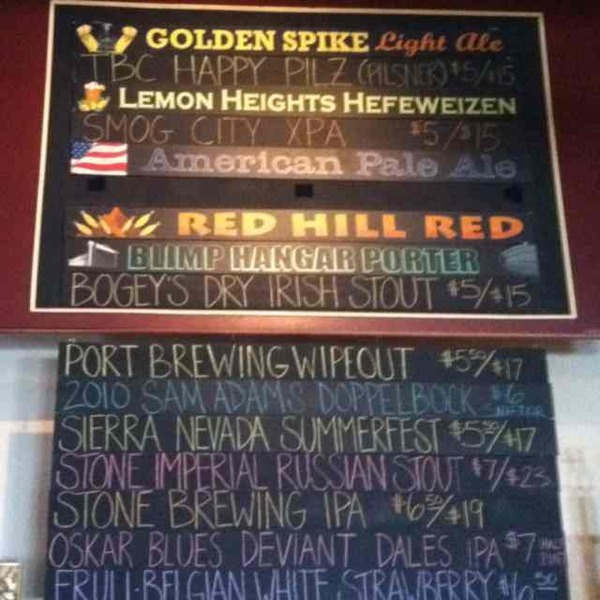 GOLDEN SPIKE Light Ale
TBC HAPPY PILZ (PILSNER) $5/$15
LEMON HEIGHTS HEFEWEIZEN
SMOG CITY XPA $5/$15
American Pale Ale
RED HILL RED
BLIMP HANGAR PORTER
BOGEY'S DRY IRISH STOUT $5/$15
PORT BREWING WIPEOUT $5⁵⁰/$17
2010 SAM ADAMS DOPPELBOCK $6 SNIFTER
SIERRA NEVADA SUMMERFEST $5⁵⁰/$17
STONE IMPERIAL RUSSIAN STOUT $7/$23
STONE BREWING IPA $6⁵⁰/$19
OSKAR BLUES DEVIANT DALES IPA $7 HALF PINT
FRULI-BELGIAN WHITE STRAWBERRY $6⁵⁰